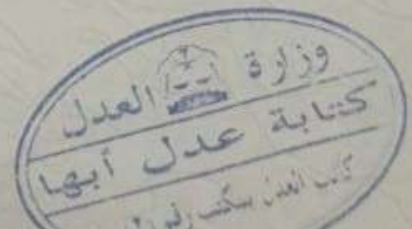 وزارة العدل
كتابة عدل أبها
كاتب العدل بمكتب رقم